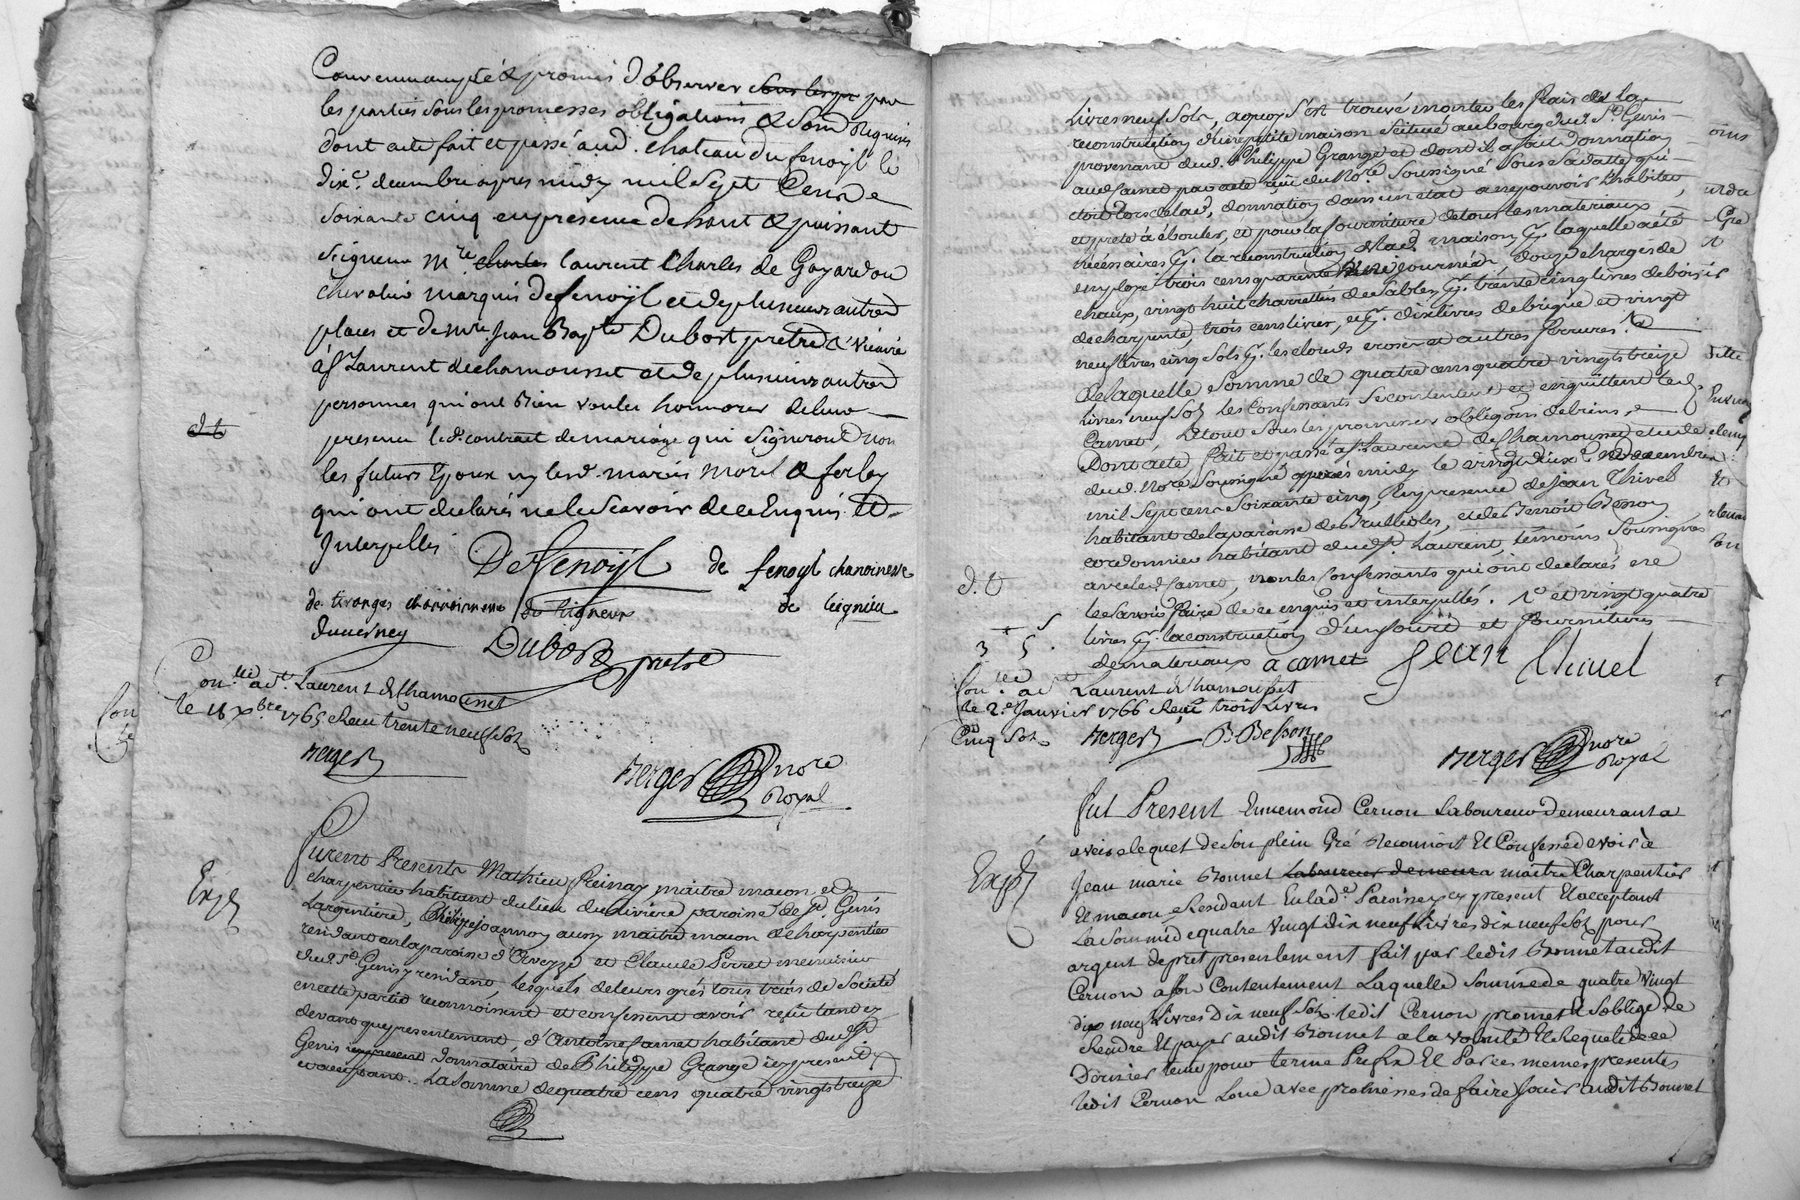 Convenu accepté & promis d'observer sous les p[ar] par
les parties sous les promesses obligations & Soum Requises
dont acte fait et passé aud. chateau du fenoÿl le
dixe. decembre apres midy mil Sept Cent
Soixante cinq en presence de haut & puissant
Seigneur mre. Charles laurent Charles de Gayardon
chevalier marquis de fenoÿl et de plusieurs autres
places et de mre. Jean Bapte Dubost pretre & vicaire
à st Laurent de chamousset et de plusieurs autres
personnes qui ont bien voulu honnorer de leur
presence led. contrat de mariage qui Signeront non
les futurs Epoux ny lesd. mariés morel & ferley
qui ont declarés ne le Scavoir de ce Enquis &
Interpellés
DeFenoÿl de fenoyl chanoinesse
de tiranges chanoinesse de ligneux de leignieu
duverney
Dubost pretre
d. t
Conllé a st. Laurent de Chamousset
le 18 xbre 1765 Reçu trente neuf sols
Berger
Berger nore
Royal
Exp
Furent Presents Mathieu maitre macon et
charpentier habitant du lieu du Riviere paroisse de St. Genis
Largentiere, Philippe joannon aussy maitre macon & charpentier
residant en la paroisse d'Aveize et Claude Perret menuisier
dud. St Genis y residant, lesquels de leurs grés tous trois de Societé
en cette partie reconnoissent et confessent avoir reçu tant cy
devant que presentement, d'Antoine Camet habitant dud. st
Genis en present donnataire de Philippe Grange icy present &
acceptant. La Somme de quatre cens quatre vingts treize
Livres neuf Sols, a quoy S'est trouvé monter les frais de la
reconstruction d'une petite maison Scituée au bourg dud. St. Genis
provenant dud. Philippe Grange et dont il a fait donnation
aud Camet par acte reçu du Nore. Soussigné Sous Sa datte qui
etoit lors de lad. donnation dans un etat a ne pouvoir L'habiter
et prete à ébouler, et pour la fourniture de tous les materiaux
nécéssaires pr. la reconstruction de lad. maison, pr. laquelle a été
employé trois cens quarante journées, douze charges de
chaux, vingt huit charrettées de Sables, pr. trente cinq livres de bois
de charpente, trois cens livres, et pr. dix livres de brique et vingt
neuf livres cinq Sols pr. les clouds et autres ferrures.
De laquelle Somme de quatre cens quatre vingts treize
livres neuf Sols les Confessants Se contentent et en quittent led.
Camet, Le tout sous les promesses obligaons de biens, &
Dont acte fait et passé a st Laurent de Chamousset etude
dud. Nore. Soussigné apres midy le vingt deuxe. decembre
mil Sept cens Soixante cinq, En presence de Jean Thivel
habitant de la paroisse de Brullioles, et de Benoit Besson
cordonnier habitant dud st. Laurent, temoins Soussignés
avec led Camet, non les Confessants qui ont declarés ne
le Savoir faire de ce enquis et interpellés. et vingt quatre
livres pr. la construction d'un four et fournitures
de materiaux a camet Jean thivel
d. t
3 5
Conllé a st Laurent de Chamousset
le 2e. Janvier 1766 Reçu trois Livres
Cinq Sols Berger B Besson
Berger nore
Royal
Exp
Fut Present Ennemond Cernon Laboureur demeurant a
aveize lequel de Son plein Gré Reconnoit Et Confesse devoir à
Jean marie Bonnet Laboureur demeura maitre Charpentier
Et macon Residant En lad. Paroisse icy present Et acceptant
La Somme de quatre vingt dix neuf Livres dix neuf Sols pour
argent de pret presentement fait par ledit Bonnet audit
Cernon a Son Contentement Laquelle Somme de quatre vingt
dix neuf Livres Dix neuf Sols ledit Cernon promet & S'oblige de
Rendre Et payer audit Bonnet a la volonté Et Requete de ce
Dernier tenu pour terme Prefix Et Par ces memes presentes
ledit Cernon Loue avec promesses de faire Jouir audit Bonnet